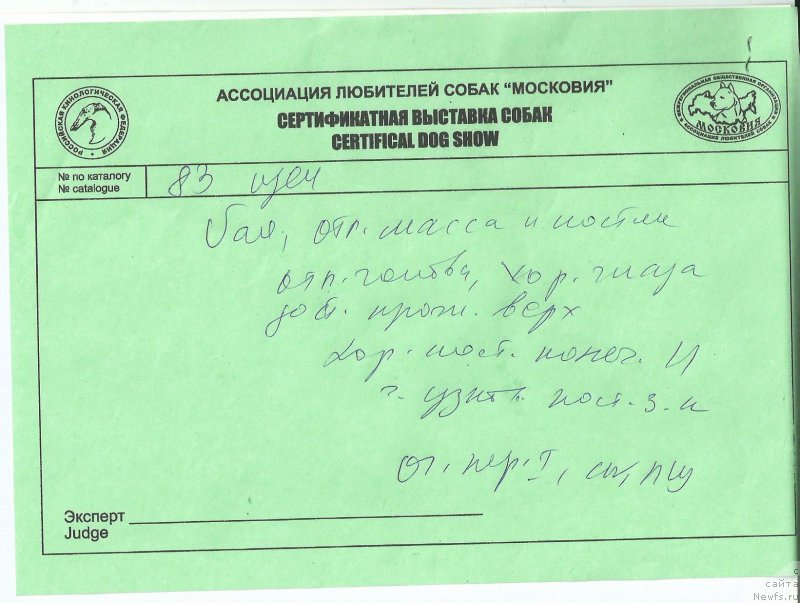 АССОЦИАЦИЯ ЛЮБИТЕЛЕЙ СОБАК “МОСКОВИЯ”
СЕРТИФИКАТНАЯ ВЫСТАВКА СОБАК
CERTIFICAL DOG SHOW
РОССИЙСКАЯ КИНОЛОГИЧЕСКАЯ ФЕДЕРАЦИЯ
МЕЖРЕГИОНАЛЬНАЯ ОБЩЕСТВЕННАЯ ОРГАНИЗАЦИЯ
МОСКОВИЯ
АССОЦИАЦИЯ ЛЮБИТЕЛЕЙ СОБАК
№ по каталогу
№ catalogue
83 щен
отл. масса и костяк
отл. голова, хор. глаза
дост. проч. верх
хор. пост. конеч.
пост. з. к
оч. пер. I,
Эксперт
Judge
с
сайта
Newfs.ru